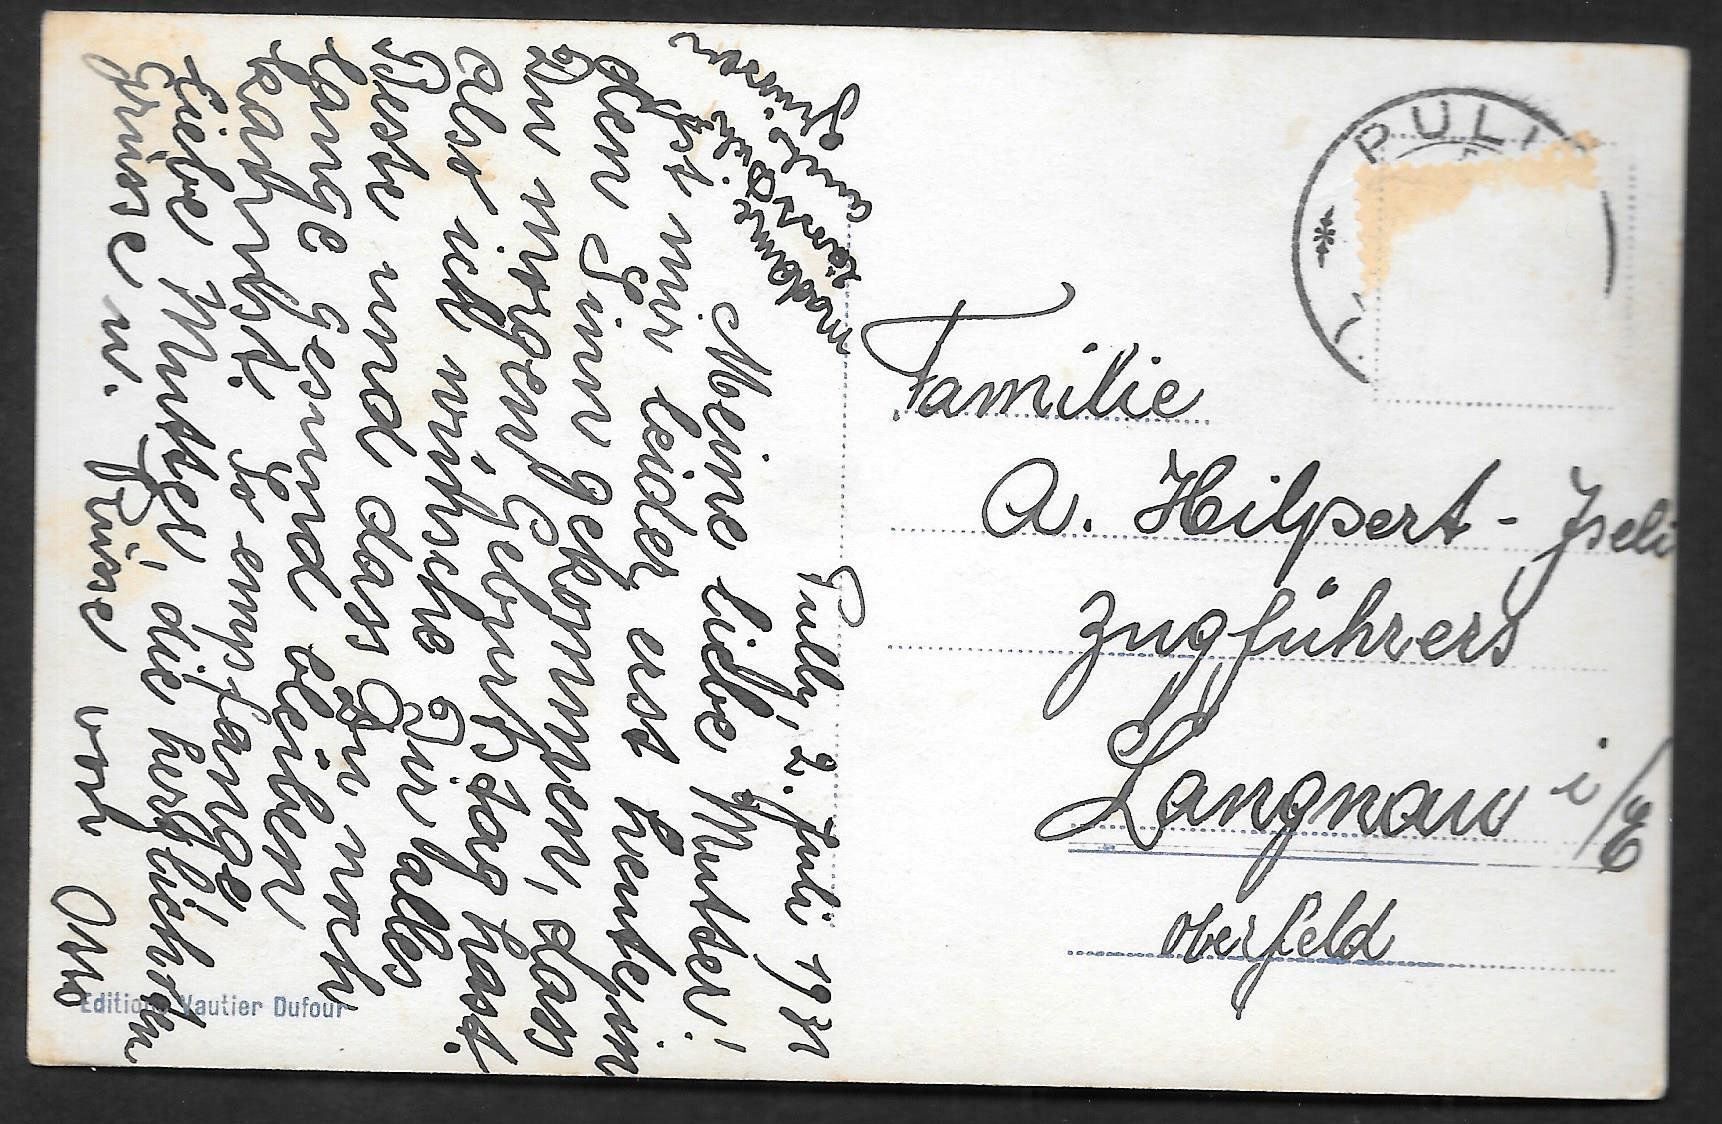 Pully, 2. Juli 1931
Meine liebe Mutter!
Ist mir leider erst heute in
den Sinn gekommen, dass
Du morgen Geburtstag hast.
Also ich wünsche Dir alles
Beste und dass Du noch
lange gesund bleiben
kannst. So empfange,
Liebe Mutter, die herzlichsten
Grüsse u. Küsse von Otto
Madame
lässt
auch
Grüssen
PULLY
Familie
A. Hilpert-Iseli
Zugführers
Langnau i/E
Oberfeld
Editions Vautier Dufour